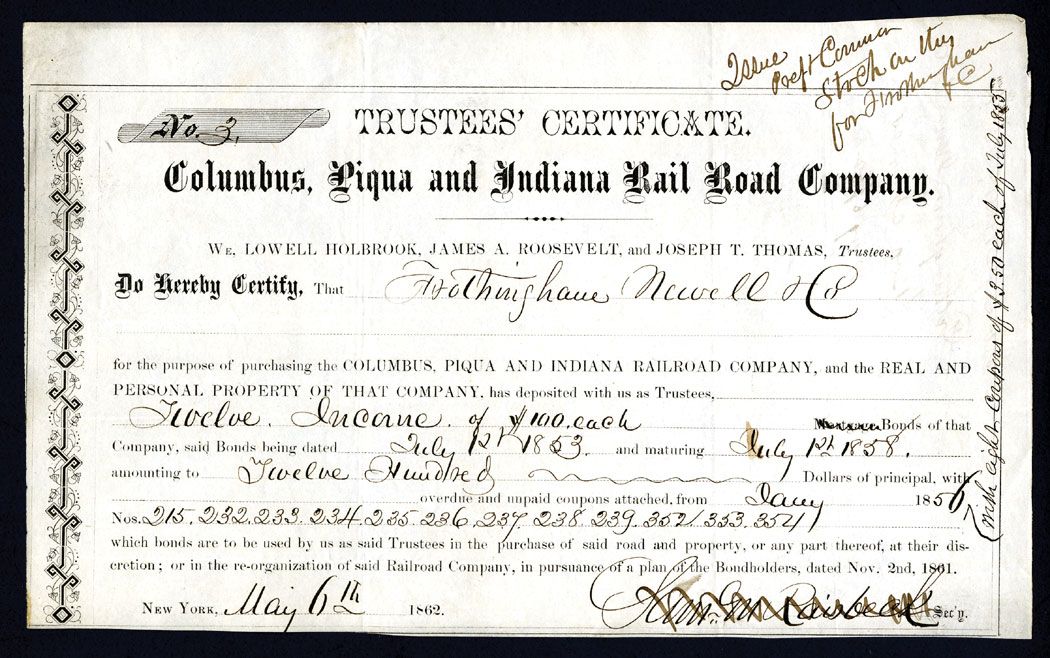 Issue
Preft Common
Stock on this
for Frothingham
& C
No. 3.
TRUSTEES' CERTIFICATE.
Columbus, Piqua and Indiana Rail Road Company.
WE, LOWELL HOLBROOK, JAMES A. ROOSEVELT, and JOSEPH T. THOMAS, Trustees,
Do Hereby Certify, That Frothinghame Newell & Co
for the purpose of purchasing the COLUMBUS, PIQUA AND INDIANA RAILROAD COMPANY, and the REAL AND
PERSONAL PROPERTY OF THAT COMPANY, has deposited with us as Trustees,
Twelve. Income. of $100. each Bonds of that
Company, said Bonds being dated July 1st 1853. and maturing July 1st 1858.
amounting to Twelve Hundred Dollars of principal, with
overdue and unpaid coupons attached, from Jany 1856
Nos. 215. 232. 233. 234. 235. 236. 237. 238. 239. 352. 353. 354
which bonds are to be used by us as said Trustees in the purchase of said road and property, or any part thereof, at their dis-
cretion; or in the re-organization of said Railroad Company, in pursuance of a plan of the Bondholders, dated Nov. 2nd, 1861.
NEW YORK, May 6th 1862. Sec'y.
(with eight Coupons of $3.50 each of July 1855